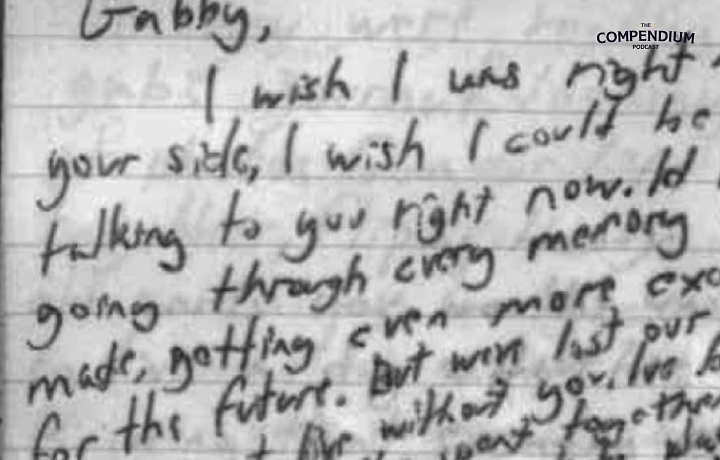 THE
COMPENDIUM
PODCAST
Gabby,
I wish I was right
your side, I wish I could be
talking to you right now. Id
going through every memory
made, getting even more exc
for the future. But weve lost our
t live without you. Ive
want together